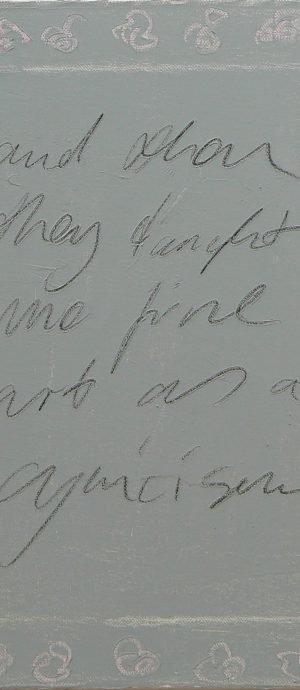 and then
they taught
me fine
art as a
cynicism